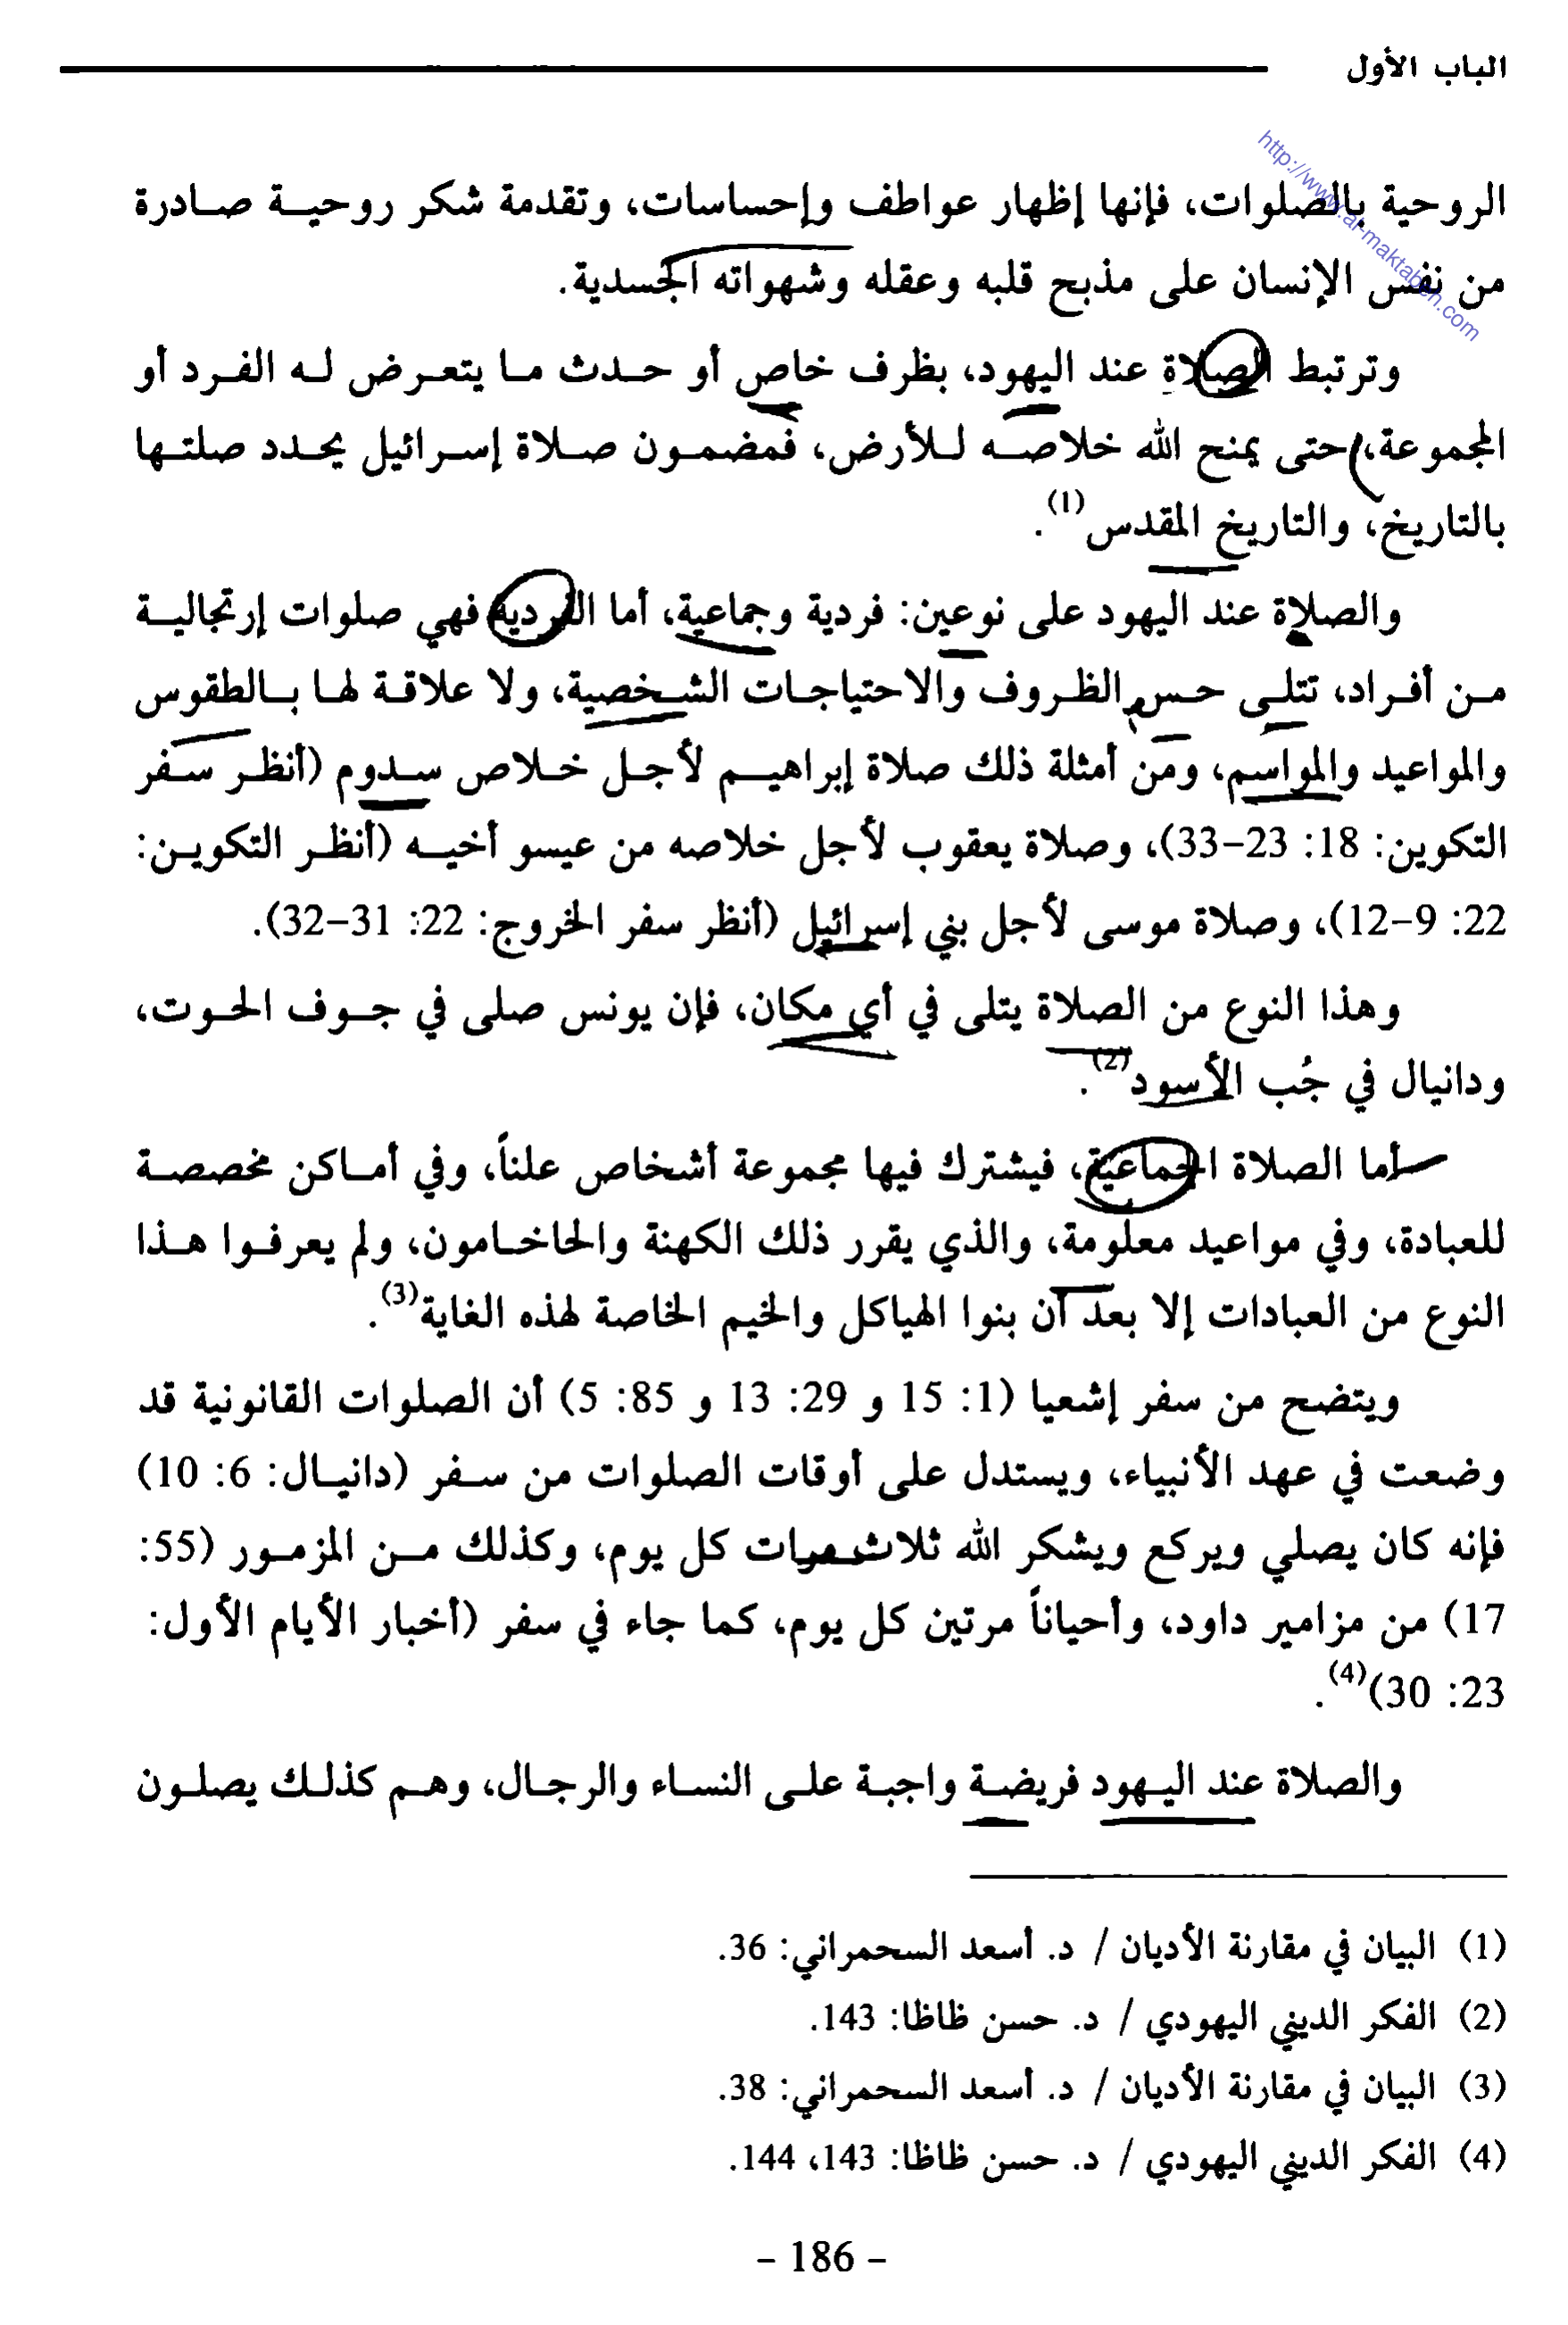 الباب الأول
http://www.al-maktabeh.com
الروحية بالصلوات، فإنها إظهار عواطف وإحساسات، وتقدمة شكر روحية صادرة
من نفس الإنسان على مذبح قلبه وعقله وشهواته الجسدية.
وترتبط الصلاة عند اليهود، بظرف خاص أو حدث ما يتعرض له الفرد أو
المجموعة، حتى يمنح الله خلاصه للأرض، فمضمون صلاة إسرائيل يحدد صلتها
بالتاريخ، والتاريخ المقدس(1).
والصلاة عند اليهود على نوعين: فردية وجماعية، أما الفردية فهي صلوات إرتجالية
من أفراد، تتلى حسب الظروف والاحتياجات الشخصية، ولا علاقة لها بالطقوس
والمواعيد والمواسم، ومن أمثلة ذلك صلاة إبراهيم لأجل خلاص سدوم (أنظر سفر
التكوين: 18: 23-33)، وصلاة يعقوب لأجل خلاصه من عيسو أخيه (أنظر التكوين:
22: 9-12)، وصلاة موسى لأجل بني إسرائيل (أنظر سفر الخروج: 22: 31-32).
وهذا النوع من الصلاة يتلى في أي مكان، فإن يونس صلى في جوف الحوت،
ودانيال في جُب الأسود(2).
أما الصلاة الجماعية، فيشترك فيها مجموعة أشخاص علناً، وفي أماكن مخصصة
للعبادة، وفي مواعيد معلومة، والذي يقرر ذلك الكهنة والحاخامون، ولم يعرفوا هذا
النوع من العبادات إلا بعد أن بنوا الهياكل والخيم الخاصة لهذه الغاية(3).
ويتضح من سفر إشعيا (1: 15 و 29: 13 و 85: 5) أن الصلوات القانونية قد
وضعت في عهد الأنبياء، ويستدل على أوقات الصلوات من سفر (دانيال: 6: 10)
فإنه كان يصلي ويركع ويشكر الله ثلاث مرات كل يوم، وكذلك من المزمور (55:
17) من مزامير داود، وأحياناً مرتين كل يوم، كما جاء في سفر (أخبار الأيام الأول:
23: 30)(4).
والصلاة عند اليهود فريضة واجبة على النساء والرجال، وهم كذلك يصلون
(1) البيان في مقارنة الأديان / د. أسعد السحمراني: 36.
(2) الفكر الديني اليهودي / د. حسن ظاظا: 143.
(3) البيان في مقارنة الأديان / د. أسعد السحمراني: 38.
(4) الفكر الديني اليهودي / د. حسن ظاظا: 143، 144.
- 186 -